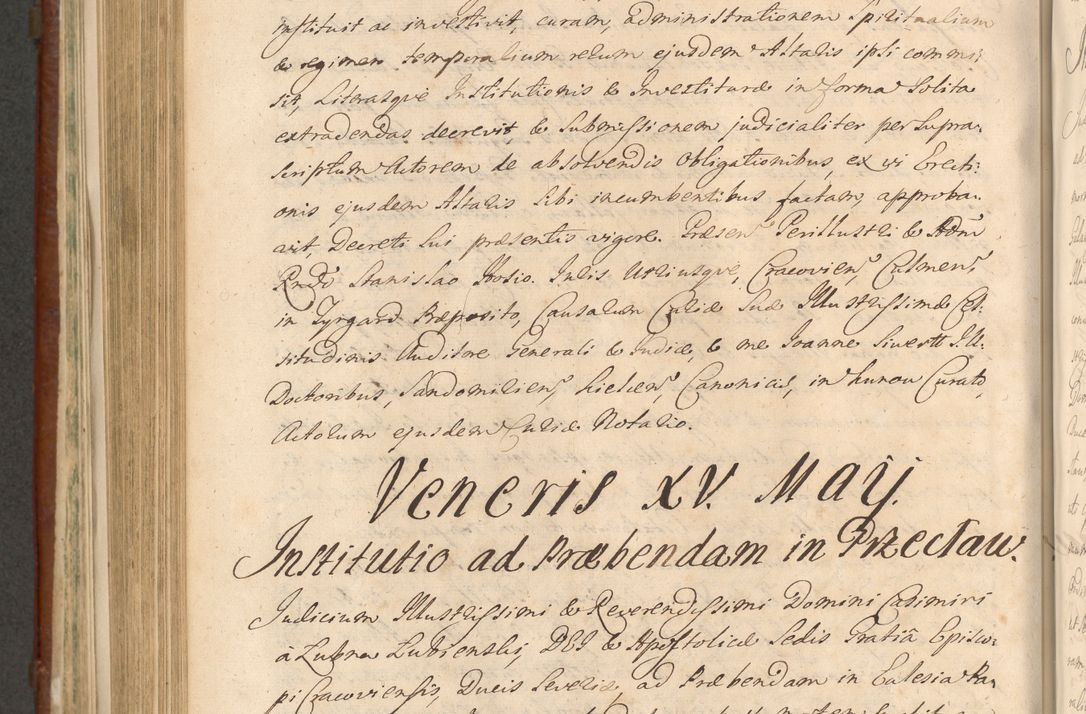 instituit ac investivit, curam, administrationem Spiritualium
& regimen temporalium rerum ejusdem Altaris ipsi commi:
sit, Literasque Institutionis & Investituræ in forma solita
extradendas decrevit, & submissionem judicialiter per supra:
scriptum Actorem de absolvendis obligationibus, ex vi Erecti:
onis ejusdem Altaris sibi incumbentibus factam, approba:
vit, Decreti sui præsentis vigore. Præsen. Perillustri & Adm
Rndo Stanislao Hosio Juris Utriusque, Cracovien, Culmen,
in Tyrgard Præposito, Causarum Curiæ Suæ Illustrissimæ Cel:
situdinis Auditore Generali & Judice, & me Joanne Siwestt I.U.
Doctoribus, Sandomirien, Kielcen, Canonicis, in Kunow Curato,
Actorum ejusdem Curiæ Notario.
Veneris XV. Maij.
Institutio ad Præbendam in Przecław.
Judicium Illustrissimi & Reverendissimi Domini Casimiri
à Lubna Lubienski, DEI & Apostolicæ Sedis Gratiâ Episco:
pi Cracoviensis, Ducis Severiæ, ad Præbendam in Ecclesia Pa: